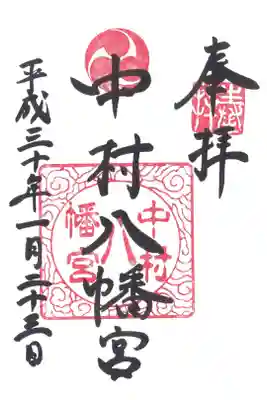 奉拝
中村八幡宮
平成三十年一月二十三日
中村
八
幡宮